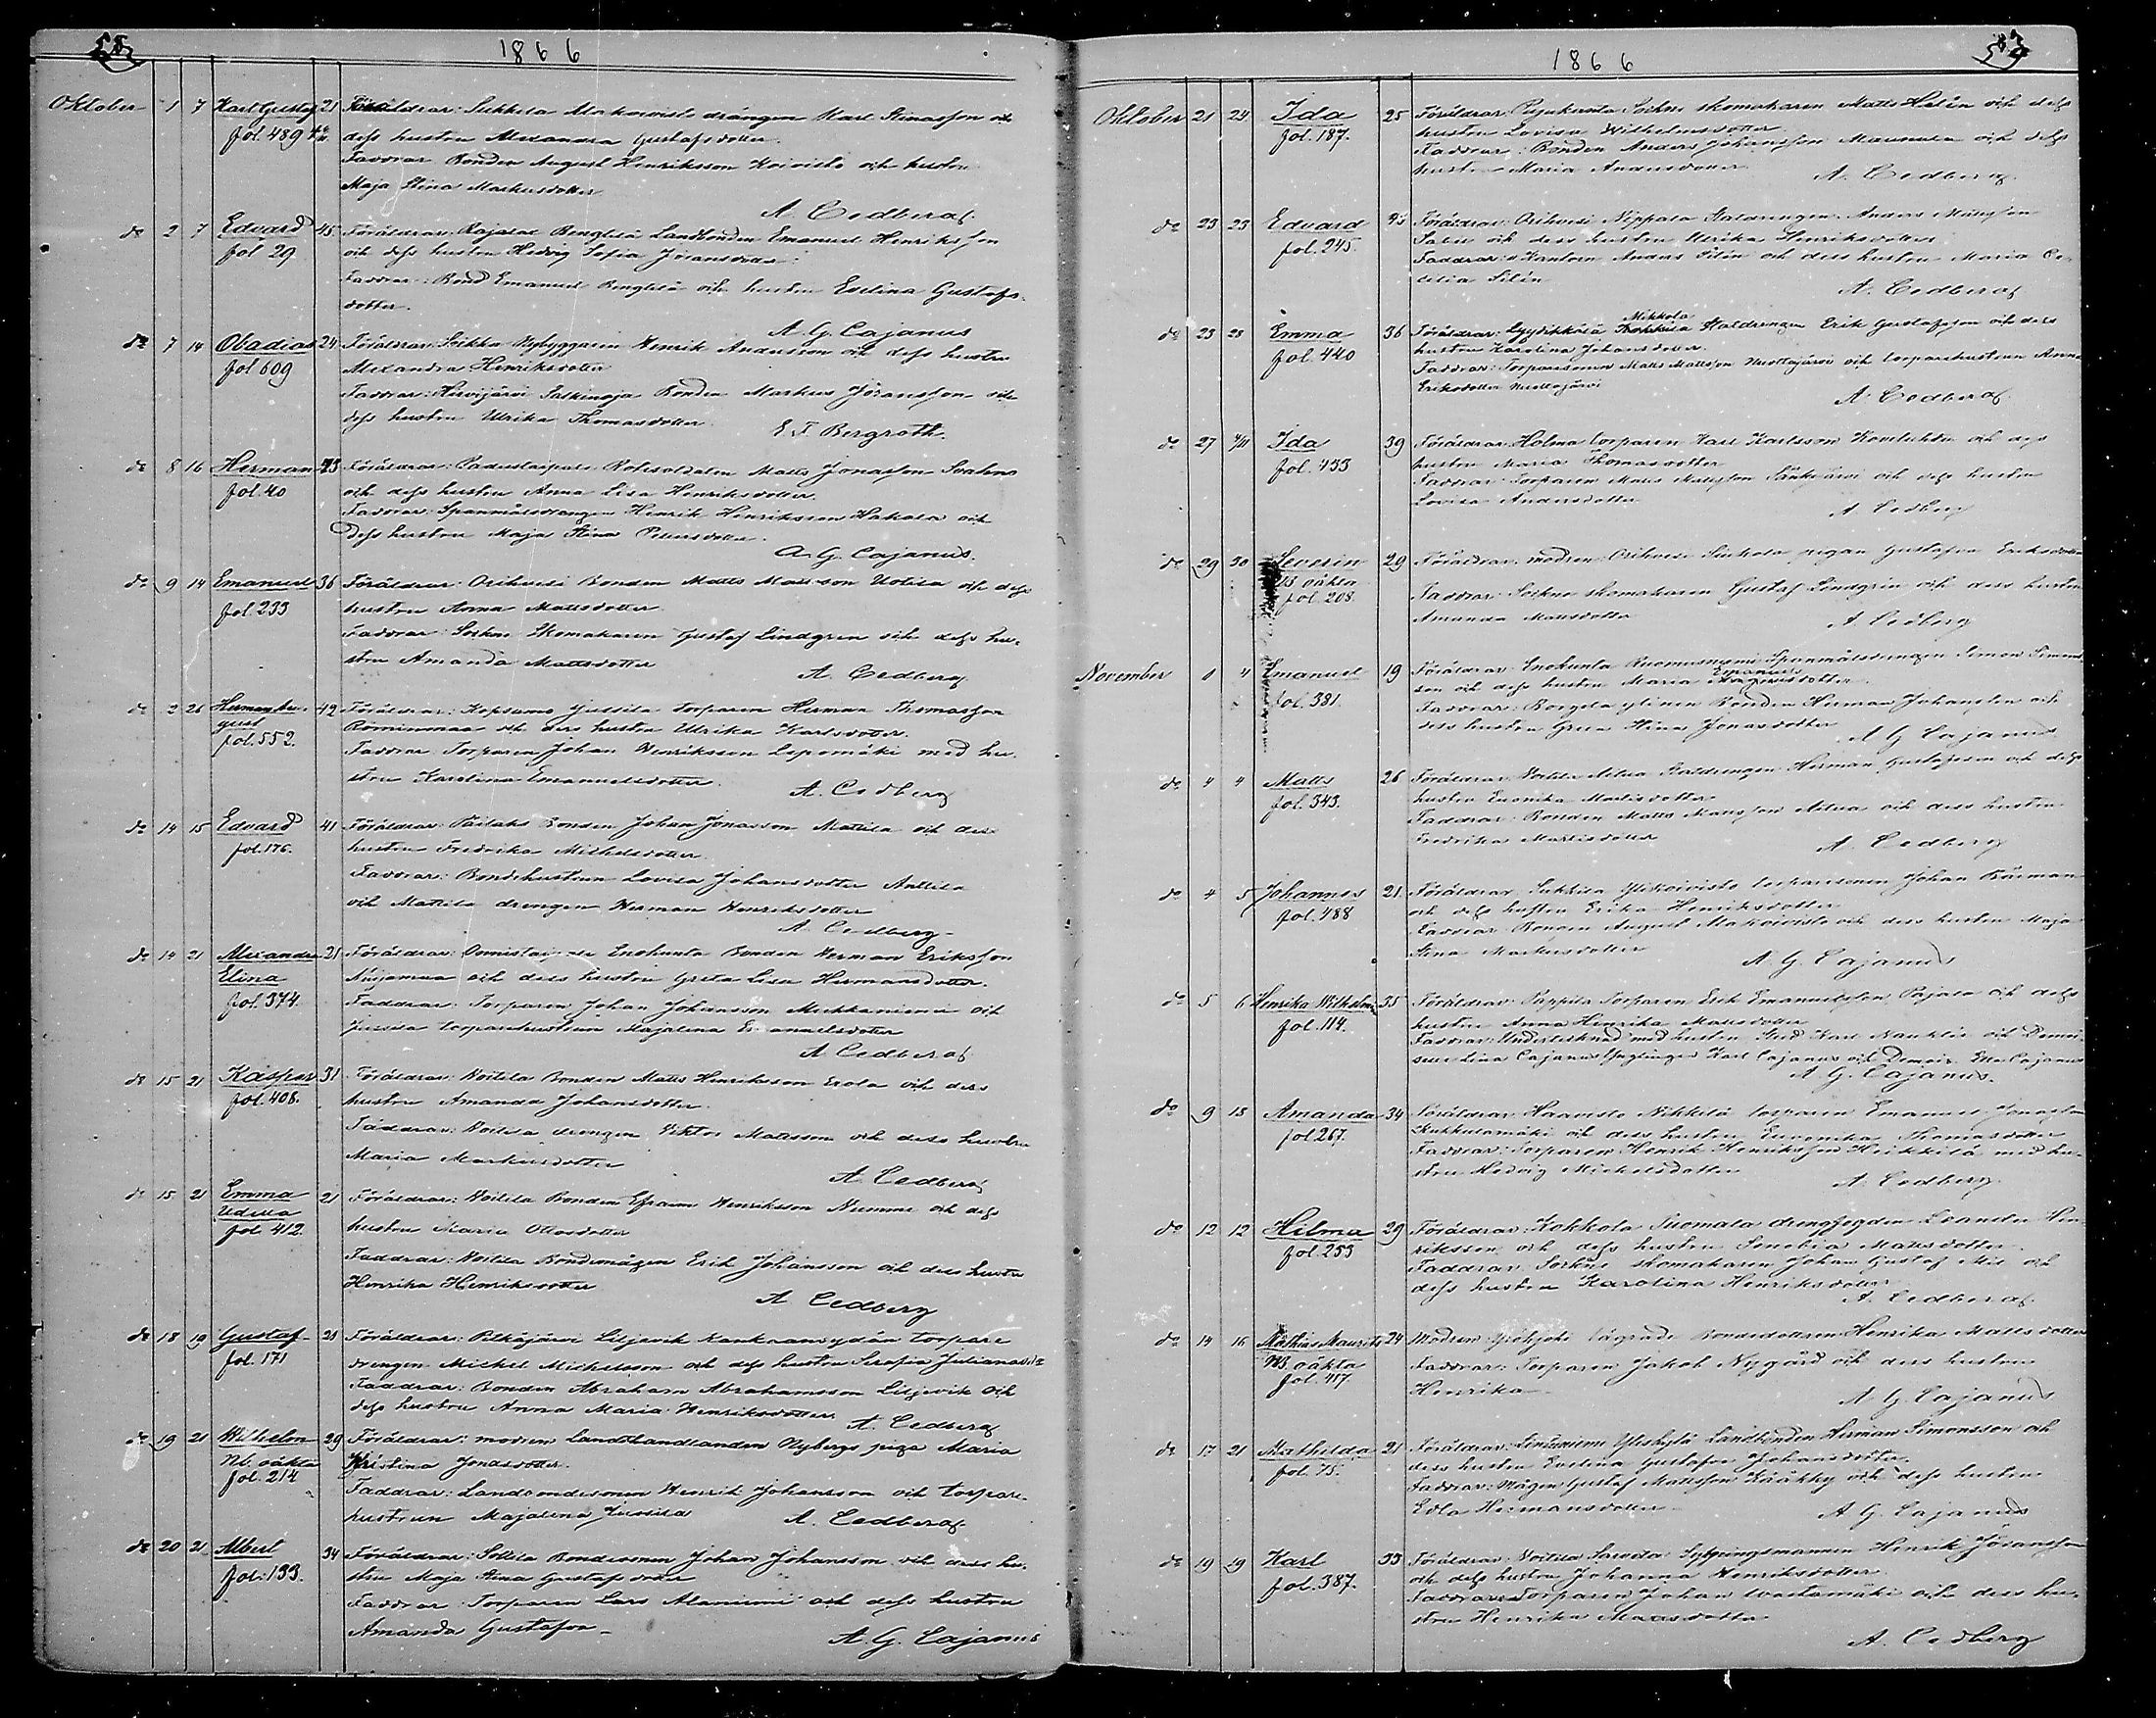 1866
Oktober 1 7 Karl Gustaf 21 Föräldrar: Sukkila Makoivisto drängen Karl Stinasson och
fol. 489 dess hustru Alexandra Gustafsdotter.
Faddrar Bonden August Henriksson Koivisto och hustru
Maja Stina Markusdotter
A. Cedberg
do 2 7 Edvard 45 Föräldrar: Bengtilä Landbonden Emanuel Henriksson
fol 29 och dess hustru Hedvig Sofia Göransdotter
Faddrar: Bond Emanuel Bengtilä och hustru Evelina Gustafs-
dotter.
A. G. Cajanus
do 7 14 Obadias 24 Föräldrar: Soikka Nybyggaren Henrik Andersson och dess hustru
fol 609 Alexandra Henriksdotter
Faddrar: Hirvijärvi Salkinoja Bonden Markus Göransson och
dess hustru Ulrika Thomasdotter
E. F. Bergroth.
do 8 16 Herman 43 Föräldrar: Rotesoldaten Matts Jonasson Svahn
fol. 40 och dess hustru Anna Lisa Henriksdotter.
Faddrar: Spanmålsdrängen Henrik Henriksson Hakala och
dess hustru Maja Stina Petersdotter.
A. G. Cajanus.
do 9 14 Emanuel 36 Föräldrar: Orihvesi Bonden Matts Mattsson Uotila och dess
fol. 233 hustru Anna Mattsdotter.
Faddrar: Sockne Skomakaren Gustaf Lindgren och dess hu-
stru Amanda Mattsdotter
A. Cedberg
do 2 26 Herman Au- 42 Föräldrar: Kopsamo Jussila torparen Herman Thomasson
gust och dess hustru Ulrika Karlsdotter.
fol. 552. Faddrar Torparen Johan Henriksson Lepomäki med hu-
stru Karolina Emanuelsdotter.
A. Cedberg
do 14 15 Edvard 41 Föräldrar: Bonden Johan Jonasson Mattila och dess
fol. 176. hustru Fredrika Michelsdotter.
Faddrar: Bondehustrun Lovisa Johansdotter Anttila
och Mattila drengen Herman Henriksdotter
A. Cedberg
do 14 21 Alexandra 21 Föräldrar: Enokunta Bonden Herman Eriksson
Elina och dess hustru Greta Lisa Hermansdotter.
fol. 374. Faddrar: Torparen Johan Johansson och
Jussila torparehustrun Majalena Emanuelsdotter
A. Cedberg
do 15 21 Kasper 31 Föräldrar: Voitila Bonden Matts Henriksson Erola och dess
fol. 408. hustru Amanda Johansdotter.
Faddrar: Voitila drengen Viktor Mattsson och dess hustru
Maria Markusdotter
A. Cedberg
do 15 21 Emma 21 Föräldrar: Voitila Bonden Efraim Henriksson Nummi och dess
Udilla hustru Maria Ottosdotter
fol 412. Faddrar: Voitila Bondemågen Erik Johansson och dess hustru
Henrika Henriksdotter
A. Cedberg
do 18 19 Gustaf 21 Föräldrar: Pelkäjärvi Liljevik torpare
fol. 171 drengen Michel Michelsson och dess hustru Serafia
Faddrar: Bonden Abraham Abrahamsson Liljevik och
dess hustru Anna Maria Henriksdotter
A. Cedberg
do 19 21 Wilhelm 29 Föräldrar: modren Landthandlanden Nybergs piga Maria
NB. oäkta Kristina Jonasdotter.
fol. 214 Faddrar: Landbondesonen Henrik Johansson och torpare-
hustrun Majalena Jussila
A. Cedberg
do 20 21 Albert 34 Föräldrar: Sottila Bondesonen Johan Johansson och dess hu-
fol. 133. stru Maja Stina Gustafsdotter
Faddrar Torparen Lars Alaniemi och dess hustru
Amanda Gustafva
A. G. Cajanus
1866
Oktober 21 24 Ida 25 Föräldrar: Sockne skomakaren Matts Helén och dess
fol. 187. hustru Lovisa Wilhelmsdotter
Faddrar: Bonden Anders Johansson Maunula och dess
hustru Maria Andersdotter
A. Cedberg
do 23 23 Edvard Föräldrar: Orihvesi Nippala Staldrengen Anders Mattsson
fol. 245. och dess hustru Ulrika Henriksdotter
Faddrar: Kantorn Anders Silén och dess hustru Maria Ce-
celia Silén
A. Cedberg
do 23 28 Emma 36 Föräldrar: Mikkola Staldrengen Erik Gustafsson och dess
fol. 440 hustru Karolina Johansdotter.
Faddrar: Torparesonen Matts Mattsson och torparehustrun Anna
Eriksdotter
A. Cedberg
do 27 4/11 Ida 39 Föräldrar: Holma torparen Karl Karlsson och dess
fol. 433 hustru Maria Thomasdotter
Faddrar: Torparen Matts Mattsson och dess hustru
Lovisa Andersdotter
A. Cedberg
do 29 30 Severin 29 Föräldrar: modren Orihvesi pigan Gustafva Eriksdotter
NB oäkta
fol. 208. Faddrar: Sockne skomakaren Gustaf Lindgren och dess hustru
Amanda Mattsdotter
A. Cedberg
November 1 4 Emanuel 19 Föräldrar: Enokunta Spanmålsdrengen Simon Simons-
fol. 381. son och dess hustru Maria Emanuelsdotter
Faddrar: ylinen Bonden Herman Johansson och
dess hustru Greta Stina Jonasdotter
A. G. Cajanus
do 4 4 Matts 26 Föräldrar: Voitila Staldrengen Herman Gustafsson och dess
fol. 343. hustru Mattsdotter
Faddrar: Bonden Matts Mattsson och dess hustru
Fredrika Mattsdotter
A. Cedberg
do 4 5 Johannes 21 Föräldrar: Sukkila Ylikoivisto torparesonen Johan
fol. 488 och dess hustru Erika Henriksdotter
Faddrar: Bonden August Makoivisto och dess hustru Maja
Stina Markusdotter
A. G. Cajanus
do 5 6 Henrika Wilhelmina 35 Föräldrar: Pappila Torparen Erik Emanuelsson Pajala och dess
fol. 114. hustru Anna Henrika Mattsdotter
Faddrar: Undertecknad med hustru Stud Karl och Demoi-
selle Lina Cajanus Ynglingen Karl Cajanus och Demois. Cajanus
A. G. Cajanus.
do 9 18 Amanda 34 Föräldrar: Haavisto Nikkilä torparen Emanuel Jonasson
fol 267. Kukkulamäki och dess hustru Thomasdotter
Faddrar: Torparen Henrik Henriksson Heikkilä med hu-
stru Hedvig Michelsdotter
A. Cedberg.
do 12 12 Hilma 29 Föräldrar: Kokkola Tuomala drengfogden Leander Hen-
fol. 253 riksson och dess hustru Senobia Mattsdotter.
Faddrar: Sockne skomakaren Johan Gustaf och
dess hustru Karolina Henriksdotter
A. Cedberg
do 14 16 Mathias Mauritz 24 Modren: Bondedottren Henrika Mattsdotter
NB. oäkta Faddrar: Torparen Jakob Nygård och dess hustru
fol. 417. Henrika
A. G. Cajanus
do 17 21 Mathilda 21 Föräldrar: Landbonden Herman Simonsson och
fol. 75. dess hustru Evelina Gustafva Johansdotter.
Faddrar: Mågen Gustaf Mattsson och dess hustru
Edla Hermansdotter
A. G. Cajanus
do 19 19 Karl 33 Föräldrar: Voitila Henrik Göransson
fol. 387. och dess hustru Johanna Henriksdotter
Faddrar: Torparen Johan och dess hu-
stru Henrika Mattsdotter
A. Cedberg